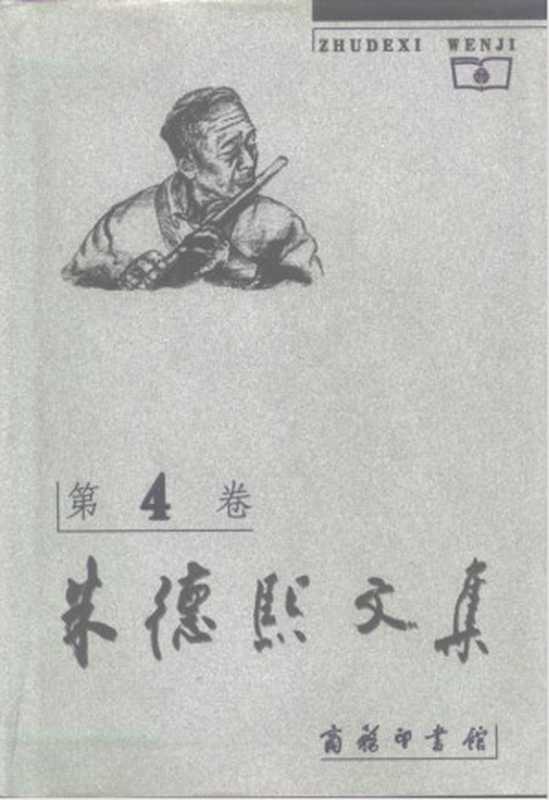 ZHUDEXI WENJI
第 4 卷
朱德熙文集
商務印書館